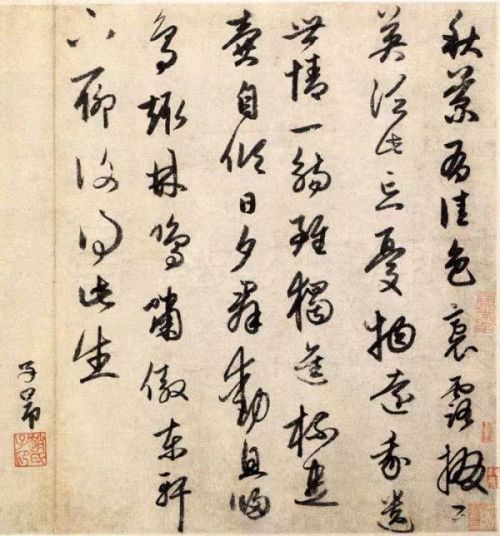 秋菊有佳色裛露掇其
英泛此忘憂物遠我遺
世情一觴雖獨進杯盡
壺自傾日夕群動息歸
鳥趣林鳴嘯傲東軒
下聊復得此生
子昂
趙氏子昂